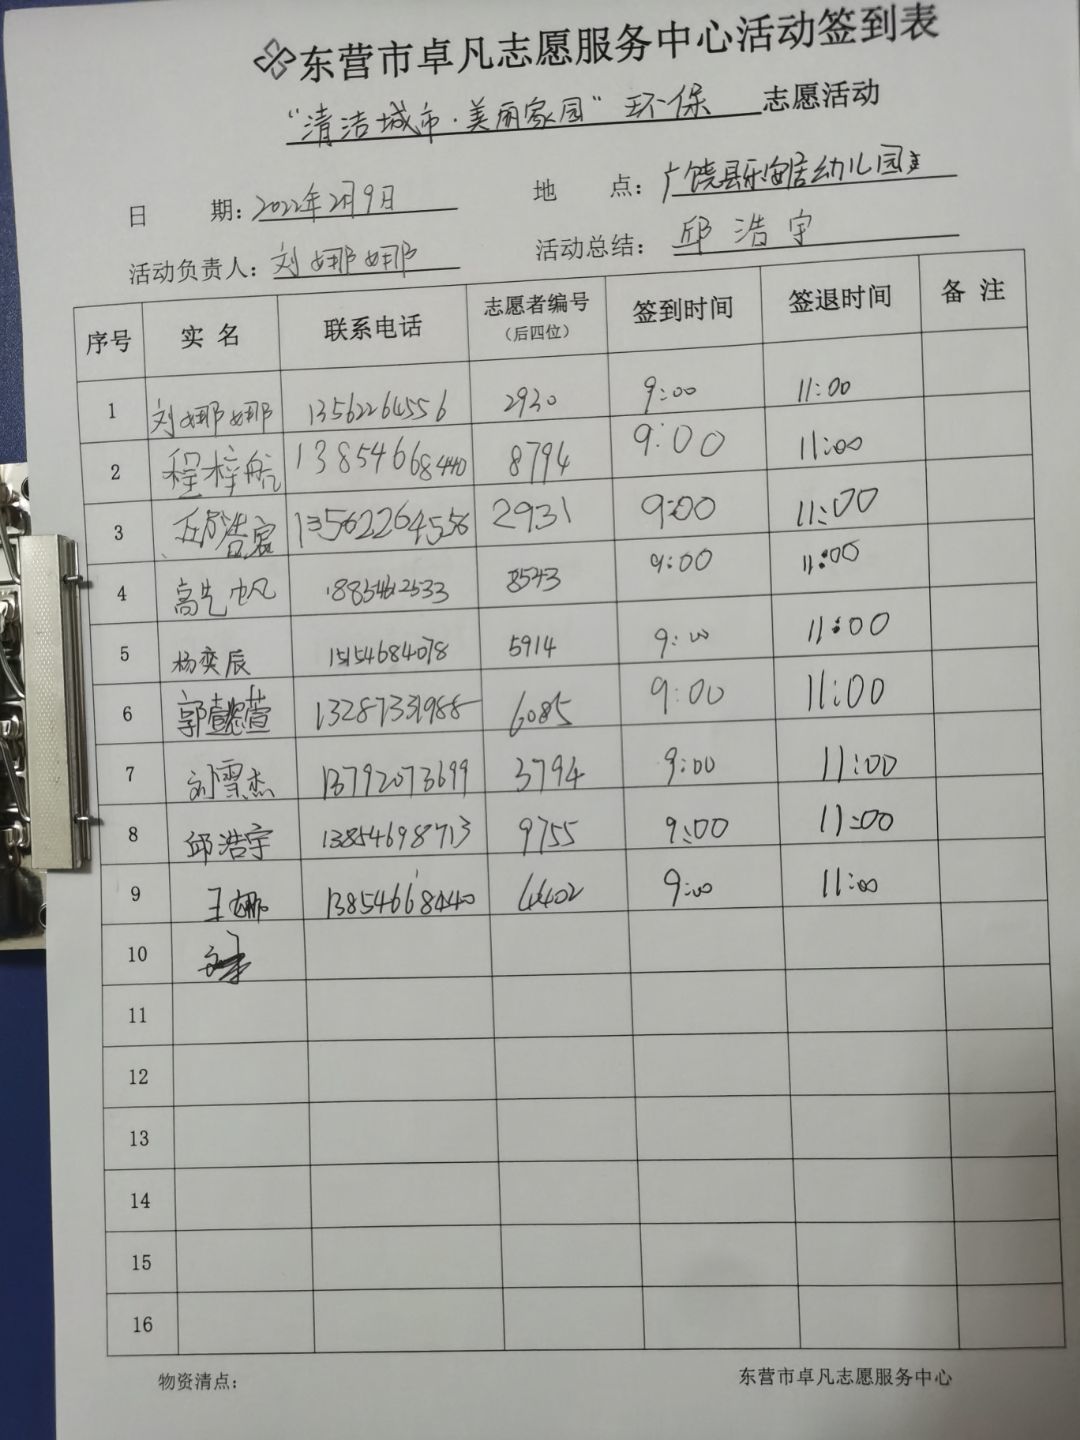 东营市卓凡志愿服务中心活动签到表
“清洁城市·美丽家园”环保 志愿活动
日 期：2022年2月9日 地 点：广饶县乐安居幼儿园
活动负责人：刘娜娜 活动总结：邱浩宇
序号 实名 联系电话 志愿者编号（后四位） 签到时间 签退时间 备注
1 刘娜娜 13562264556 2930 9:00 11:00
2 程梓航 13854668440 8794 9:00 11:00
3 浩宸 13562264556 2931 9:00 11:00
4 高先帆 18854612533 8543 9:00 11:00
5 杨奕辰 15154684078 5914 9:00 11:00
6 郭懿萱 13287331988 6085 9:00 11:00
7 刘雪杰 13792073699 3794 9:00 11:00
8 邱浩宇 13854698713 9755 9:00 11:00
9 王娜 13854668440 4402 9:00 11:00
10
11
12
13
14
15
16
物资清点： 东营市卓凡志愿服务中心